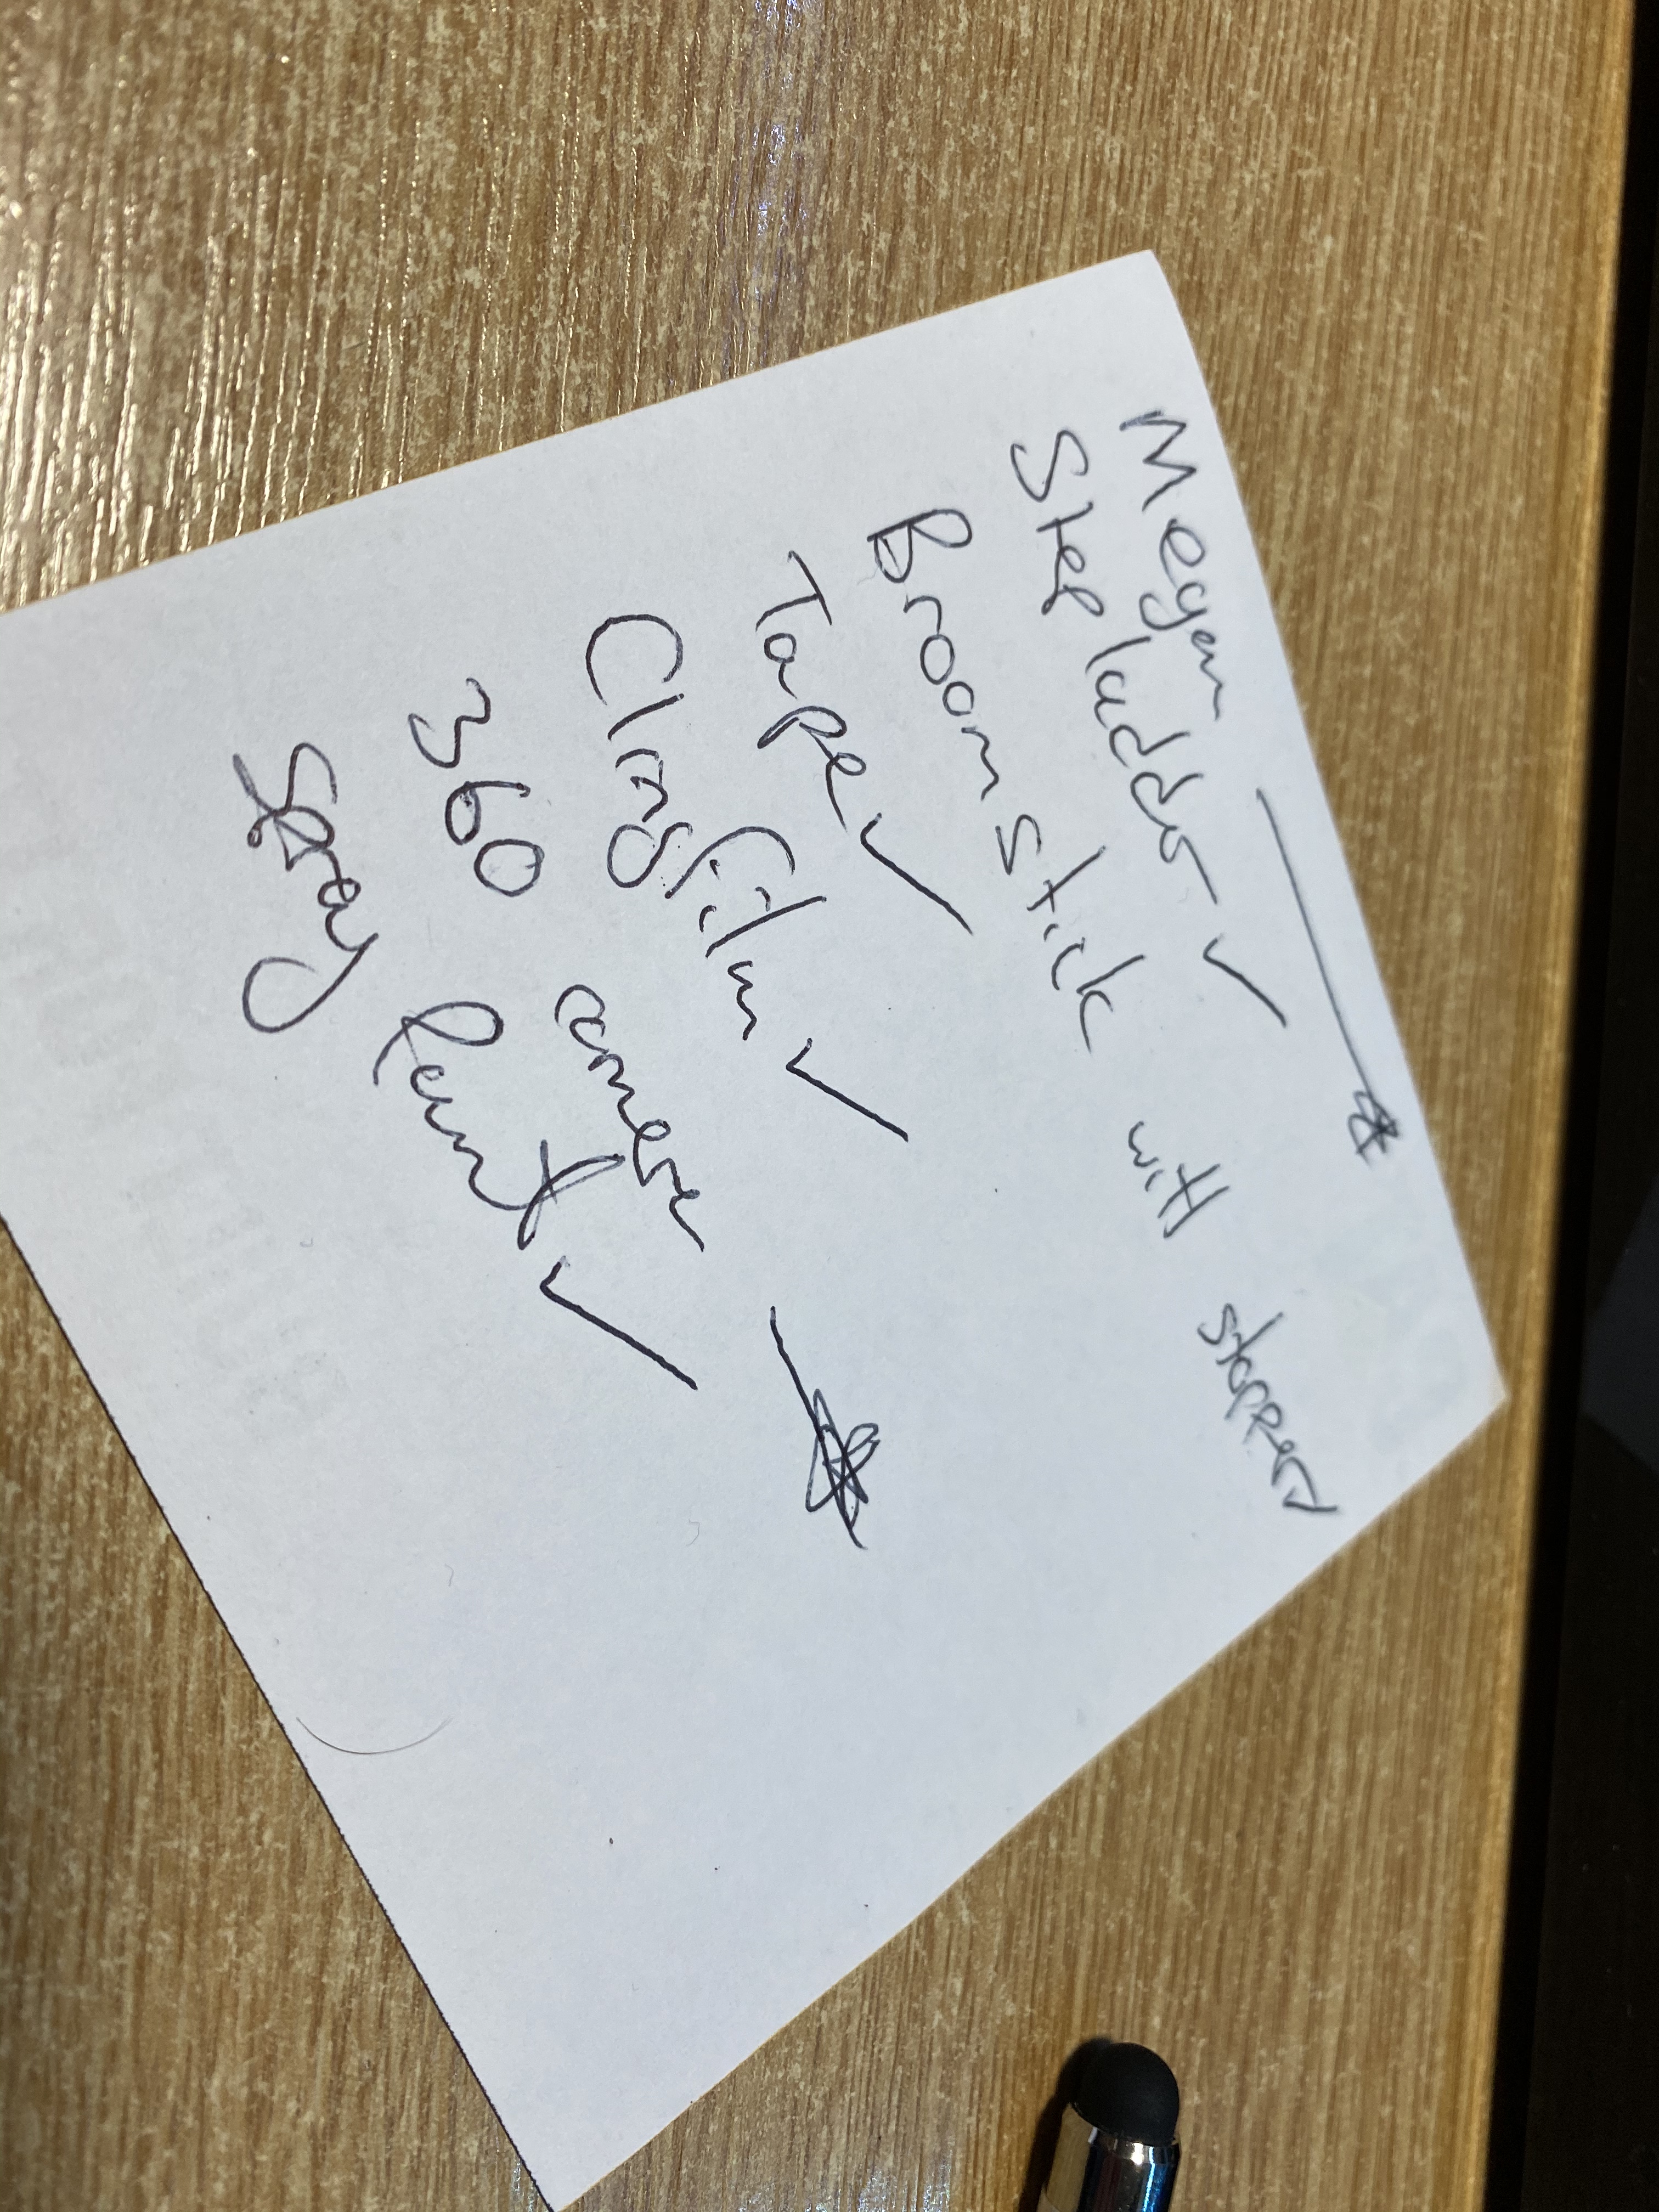 Megan
Step ladder ✓
Broom stick with stopper
Tape ✓
Clingfilm ✓
360 camera
Spray Paint ✓